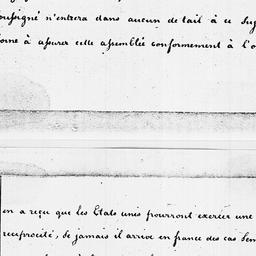 oussigné n'entrera dans aucun detail à ce Suj
orne à assurer cette assemblée conformement à l'o
en a reçu que les Etats unis pourront exercer une
reciprocité, Se jamais il arrive en france des cas Sem